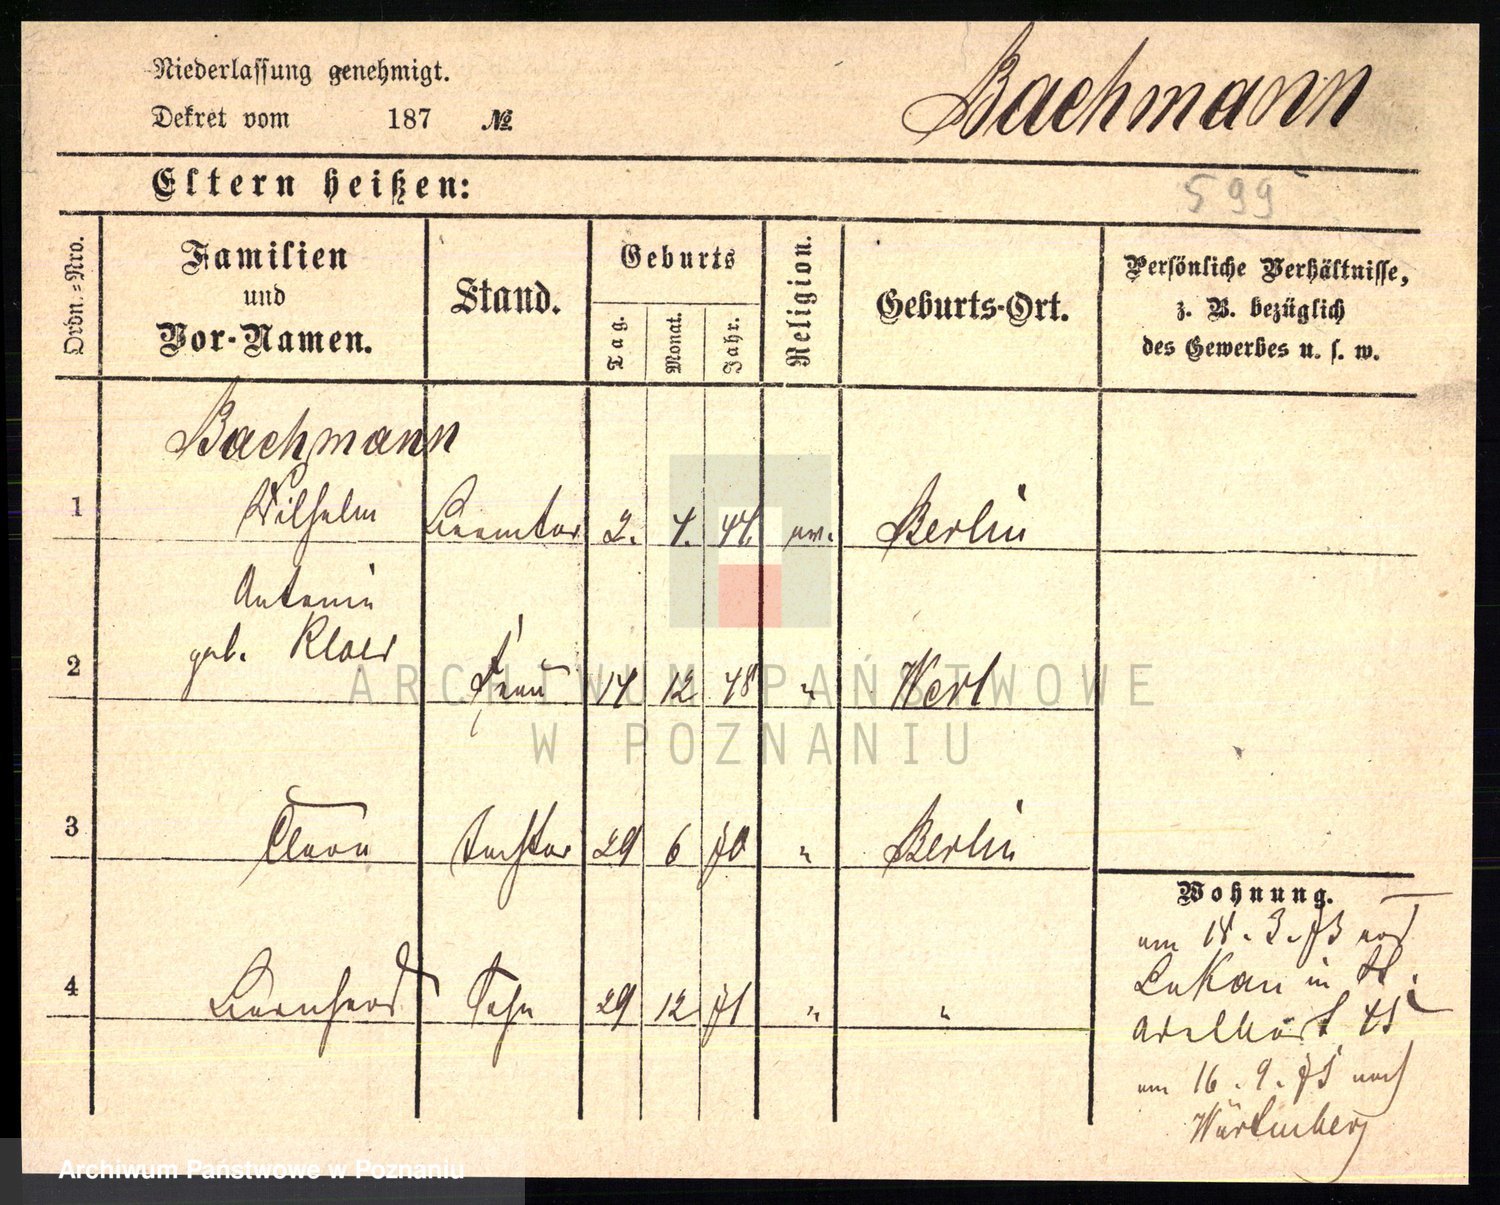 Niederlassung genehmigt.
Bachmann
Dekret vom 187 №
Eltern heißen:
599
Ordn.=Nro.
Familien
und
Vor-Namen.
Stand.
Geburts
Tag.
Monat.
Jahr.
Religion.
Geburts-Ort.
Persönliche Verhältnisse,
z. B. bezüglich
des Gewerbes u. s. w.
Bachmann
1 Wilhelm Beamter 2. 4. 44. ev. Berlin
Antonie
geb.
2 Frau 14 12 48 " Werl
3 Clara Tochter 29 6 70 " Berlin
4 Bernhard Sohn 29 12 71 " "
Wohnung.
am 18.3.73 nach
in
am 16.9. nach
Würtemberg
ARCHIWUM PAŃSTWOWE
W POZNANIU
Archiwum Państwowe w Poznaniu